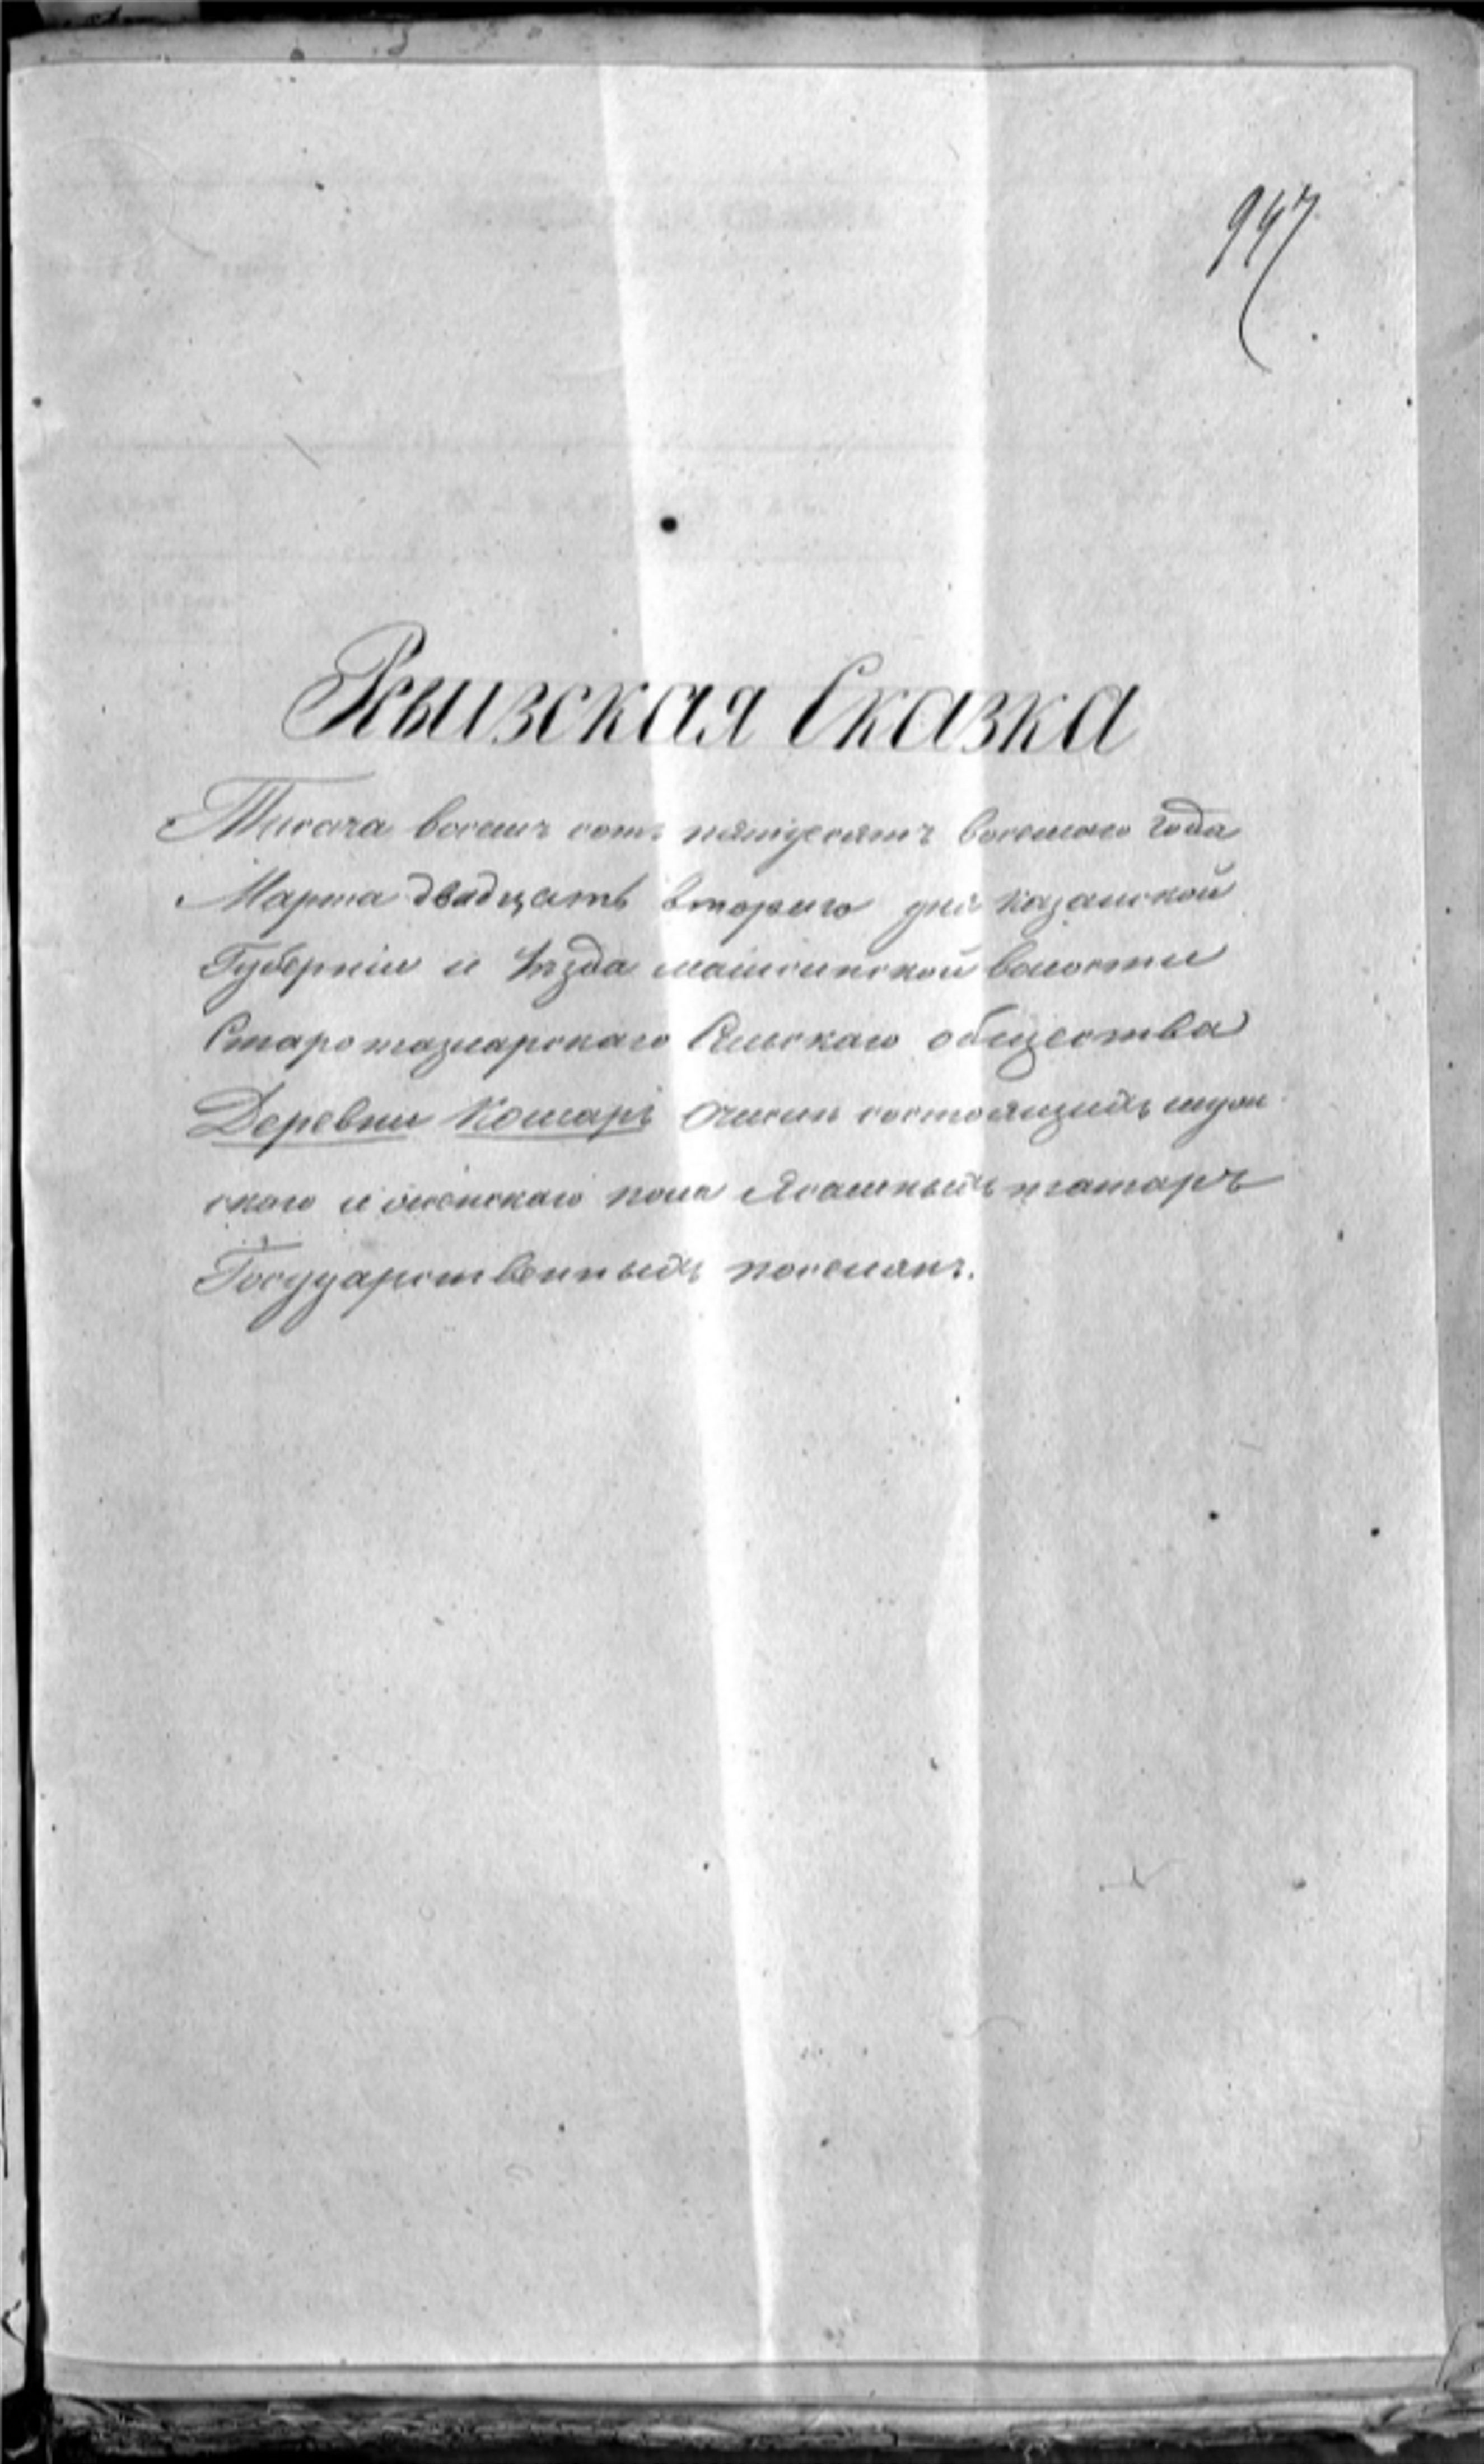 947
Ревизская Сказка
Тысяча восемь сотъ пятьдесятъ восьмаго года
Марта двадцать втораго дня Казанской
Губерніи и уѣзда мамсинской волости
Старотазларскаго Сельскаго общества
Деревни Кошаръ Осостоящихъ муже
скаго и женскаго пола Ясашныхъ татаръ
Государственныхъ поселянъ.